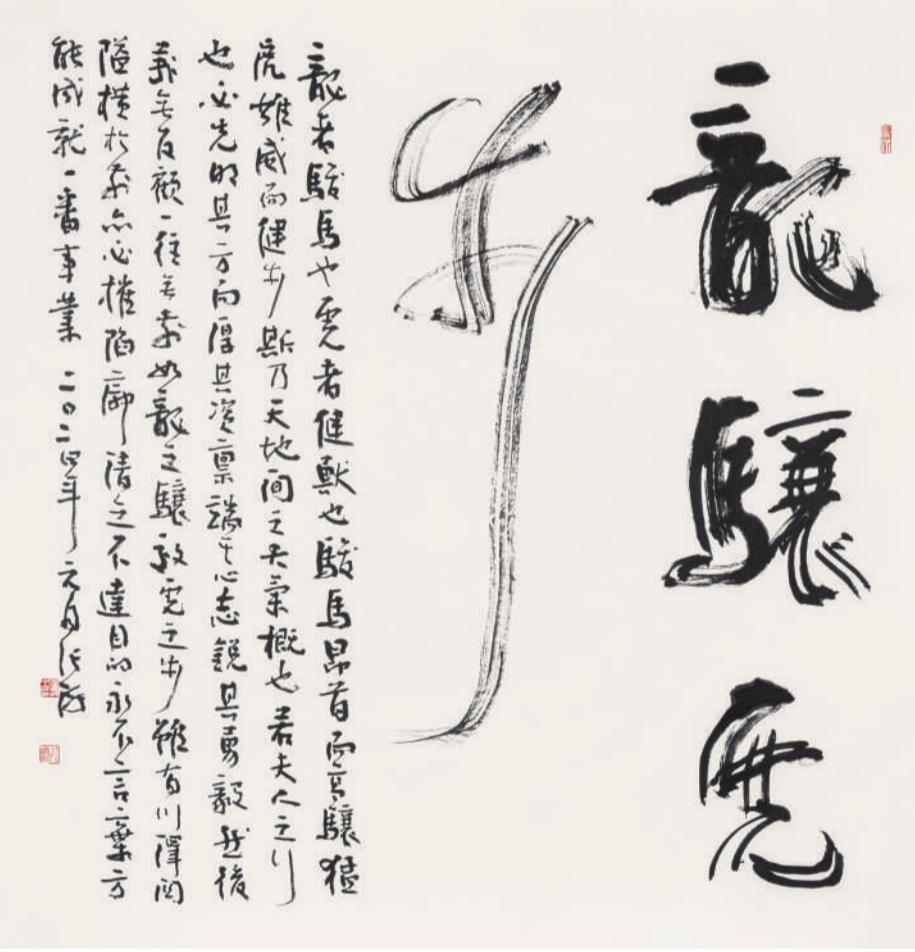 龍驤虎
步
龍者駿馬也虎者健獸也駿馬昂首而高驤猛
虎雄威而健步斯乃天地間之大氣概也若夫人之行
也必先明其方向厚其資稟端其心志銳其勇毅然後
義無反顧一往無前如龍之驤效虎之步雖有川澤關
隘橫於前亦必摧陷廓清之不達目的永不言棄方
能成就一番事業 二〇二四年元月